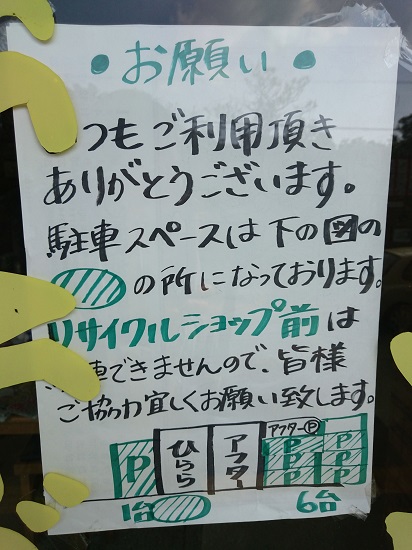 ・お願い・
つもご利用頂き
ありがとうございます。
駐車スペースは下の図の
の所になっております。
リサイクルショップ前は
車できませんので、皆様
ご協力宜しくお願い致します。
アフターⓅ
P ひらら アフター P P
P P
P P
1台 6台